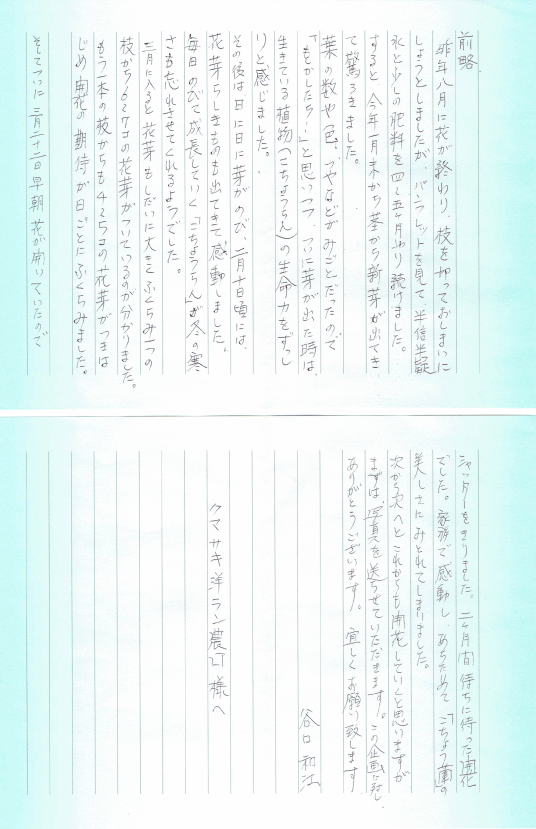 前略
昨年八月に花が終わり、枝を切っておしまいに
しようとしましたが、パンフレットを見て、半信半疑
水と少しの肥料を四〜五ヶ月やり続けました。
すると今年一月末から茎から新芽が出てき
て驚ろきました。
葉の数や色、つやなどがみごとだったので
「もしかしたら!」と思いつつ、ついに芽が出た時は、
生きている植物(こちょうらん)の生命力をずっし
りと感じました。
その後は日に日に芽がのび、二月十日頃には、
花芽らしきものも出てきて感動しました。
毎日のびて成長していく「こちょうらん」が冬の寒
さも忘れさせてくれるようでした。
三月に入ると花芽もしだいに大きくふくらみ一つの
枝から6、7コの花芽がついているのが分かりました。
もう一本の枝からも4、5コの花芽がつきは
じめ開花の期待が日ごとにふくらみました。
そしてついに三月二十二日早朝花が開いていたので
シャッターをきりました。二ヶ月間待ちに待った開花
でした。家族で感動し、あらためて「こちょう蘭」の
美しさにみとれてしまいました。
次から次へとこれからも開花していくと思いますが
まずは、写真を送らせていただきます。この企画に
ありがとうございます。宜しくお願い致します
谷口 和江
クマサキ洋ラン農園様へ